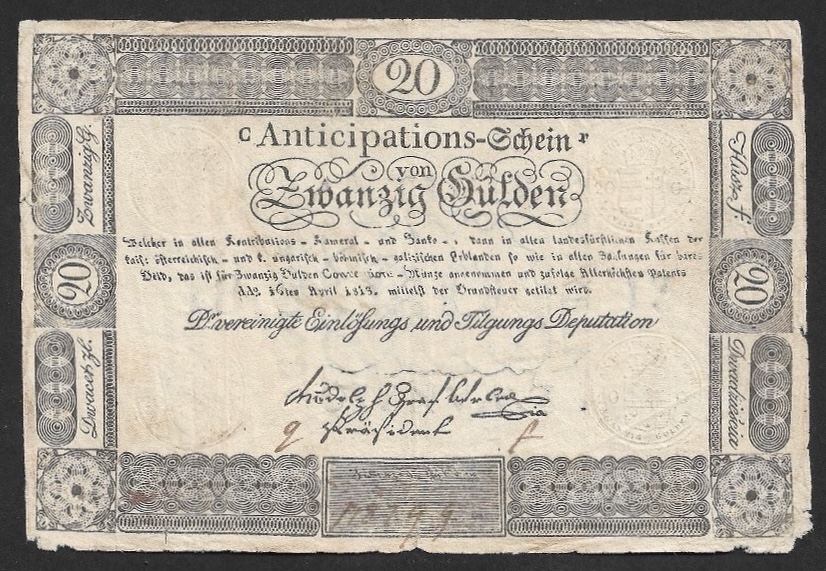 20
C Anticipations-Schein r
von
Zwanzig Gulden
Welcher in allen Kontributions- Kameral- und Banko-, dann in allen landesfürstlichen Kassen der
kais: österreichisch- und k. ungarisch- böhmisch- galizischen Erblanden so wie in allen Zahlungen für bares
Geld, das ist für Zwanzig Gulden Münze angenommen und zufolge Allerhöchsten Patents
ddo. 16ten April 1813. mittelst der Grundsteuer getilgt wird.
Die vereinigte Einlösungs und Tilgungs Deputation
Rudolph Graf
Präsident
Zwanzig G.
20
Dwacet zl.
Husz f.
20